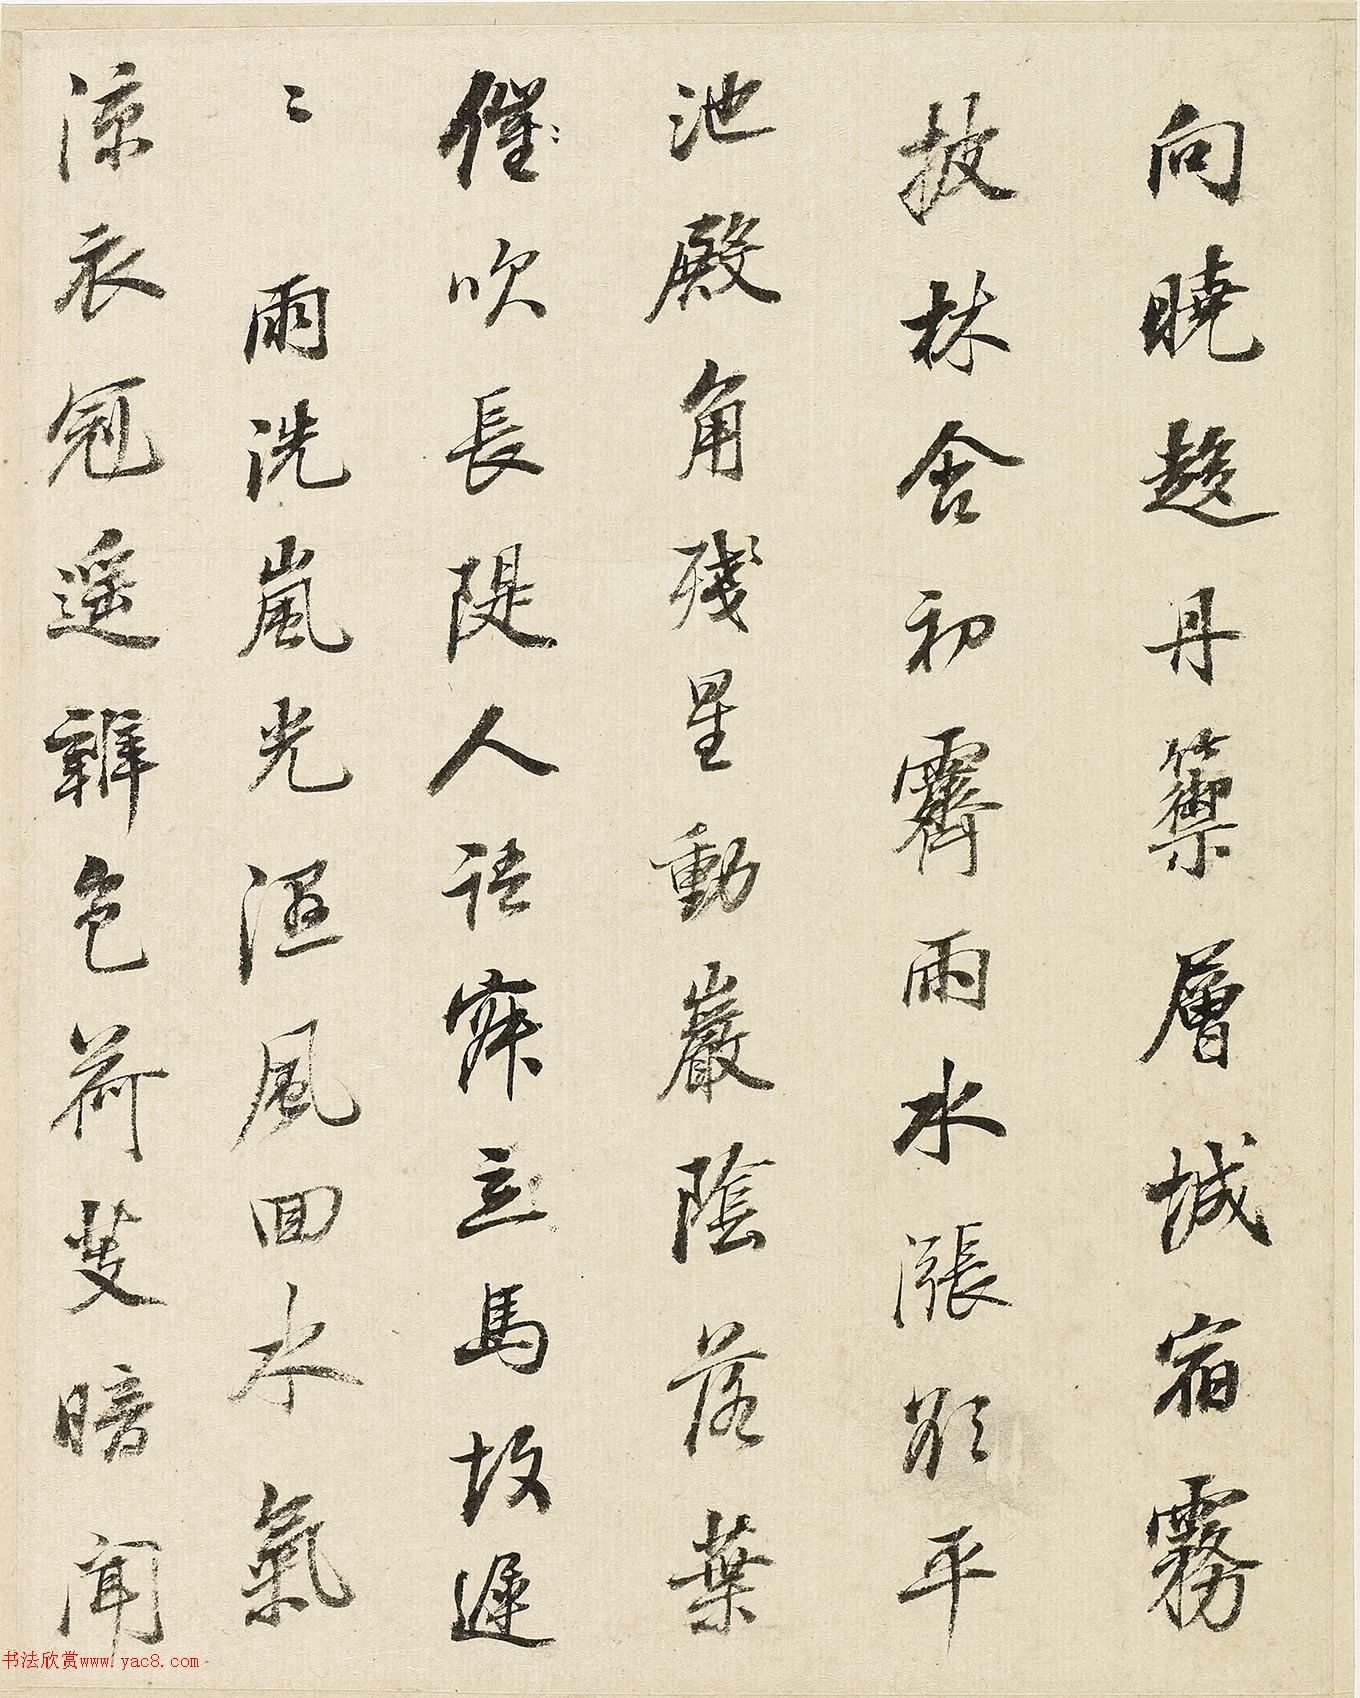 向曉趍丹籞層城宿霧
披林含初霽雨水漲欲平
池殿角殘星動巖陰落葉
催吹長隄人語寂立馬故遲
〻雨洗嵐光濕風回水氣
涼衣冠遥辨色荷芰暗聞
书法欣赏www.yac8.com